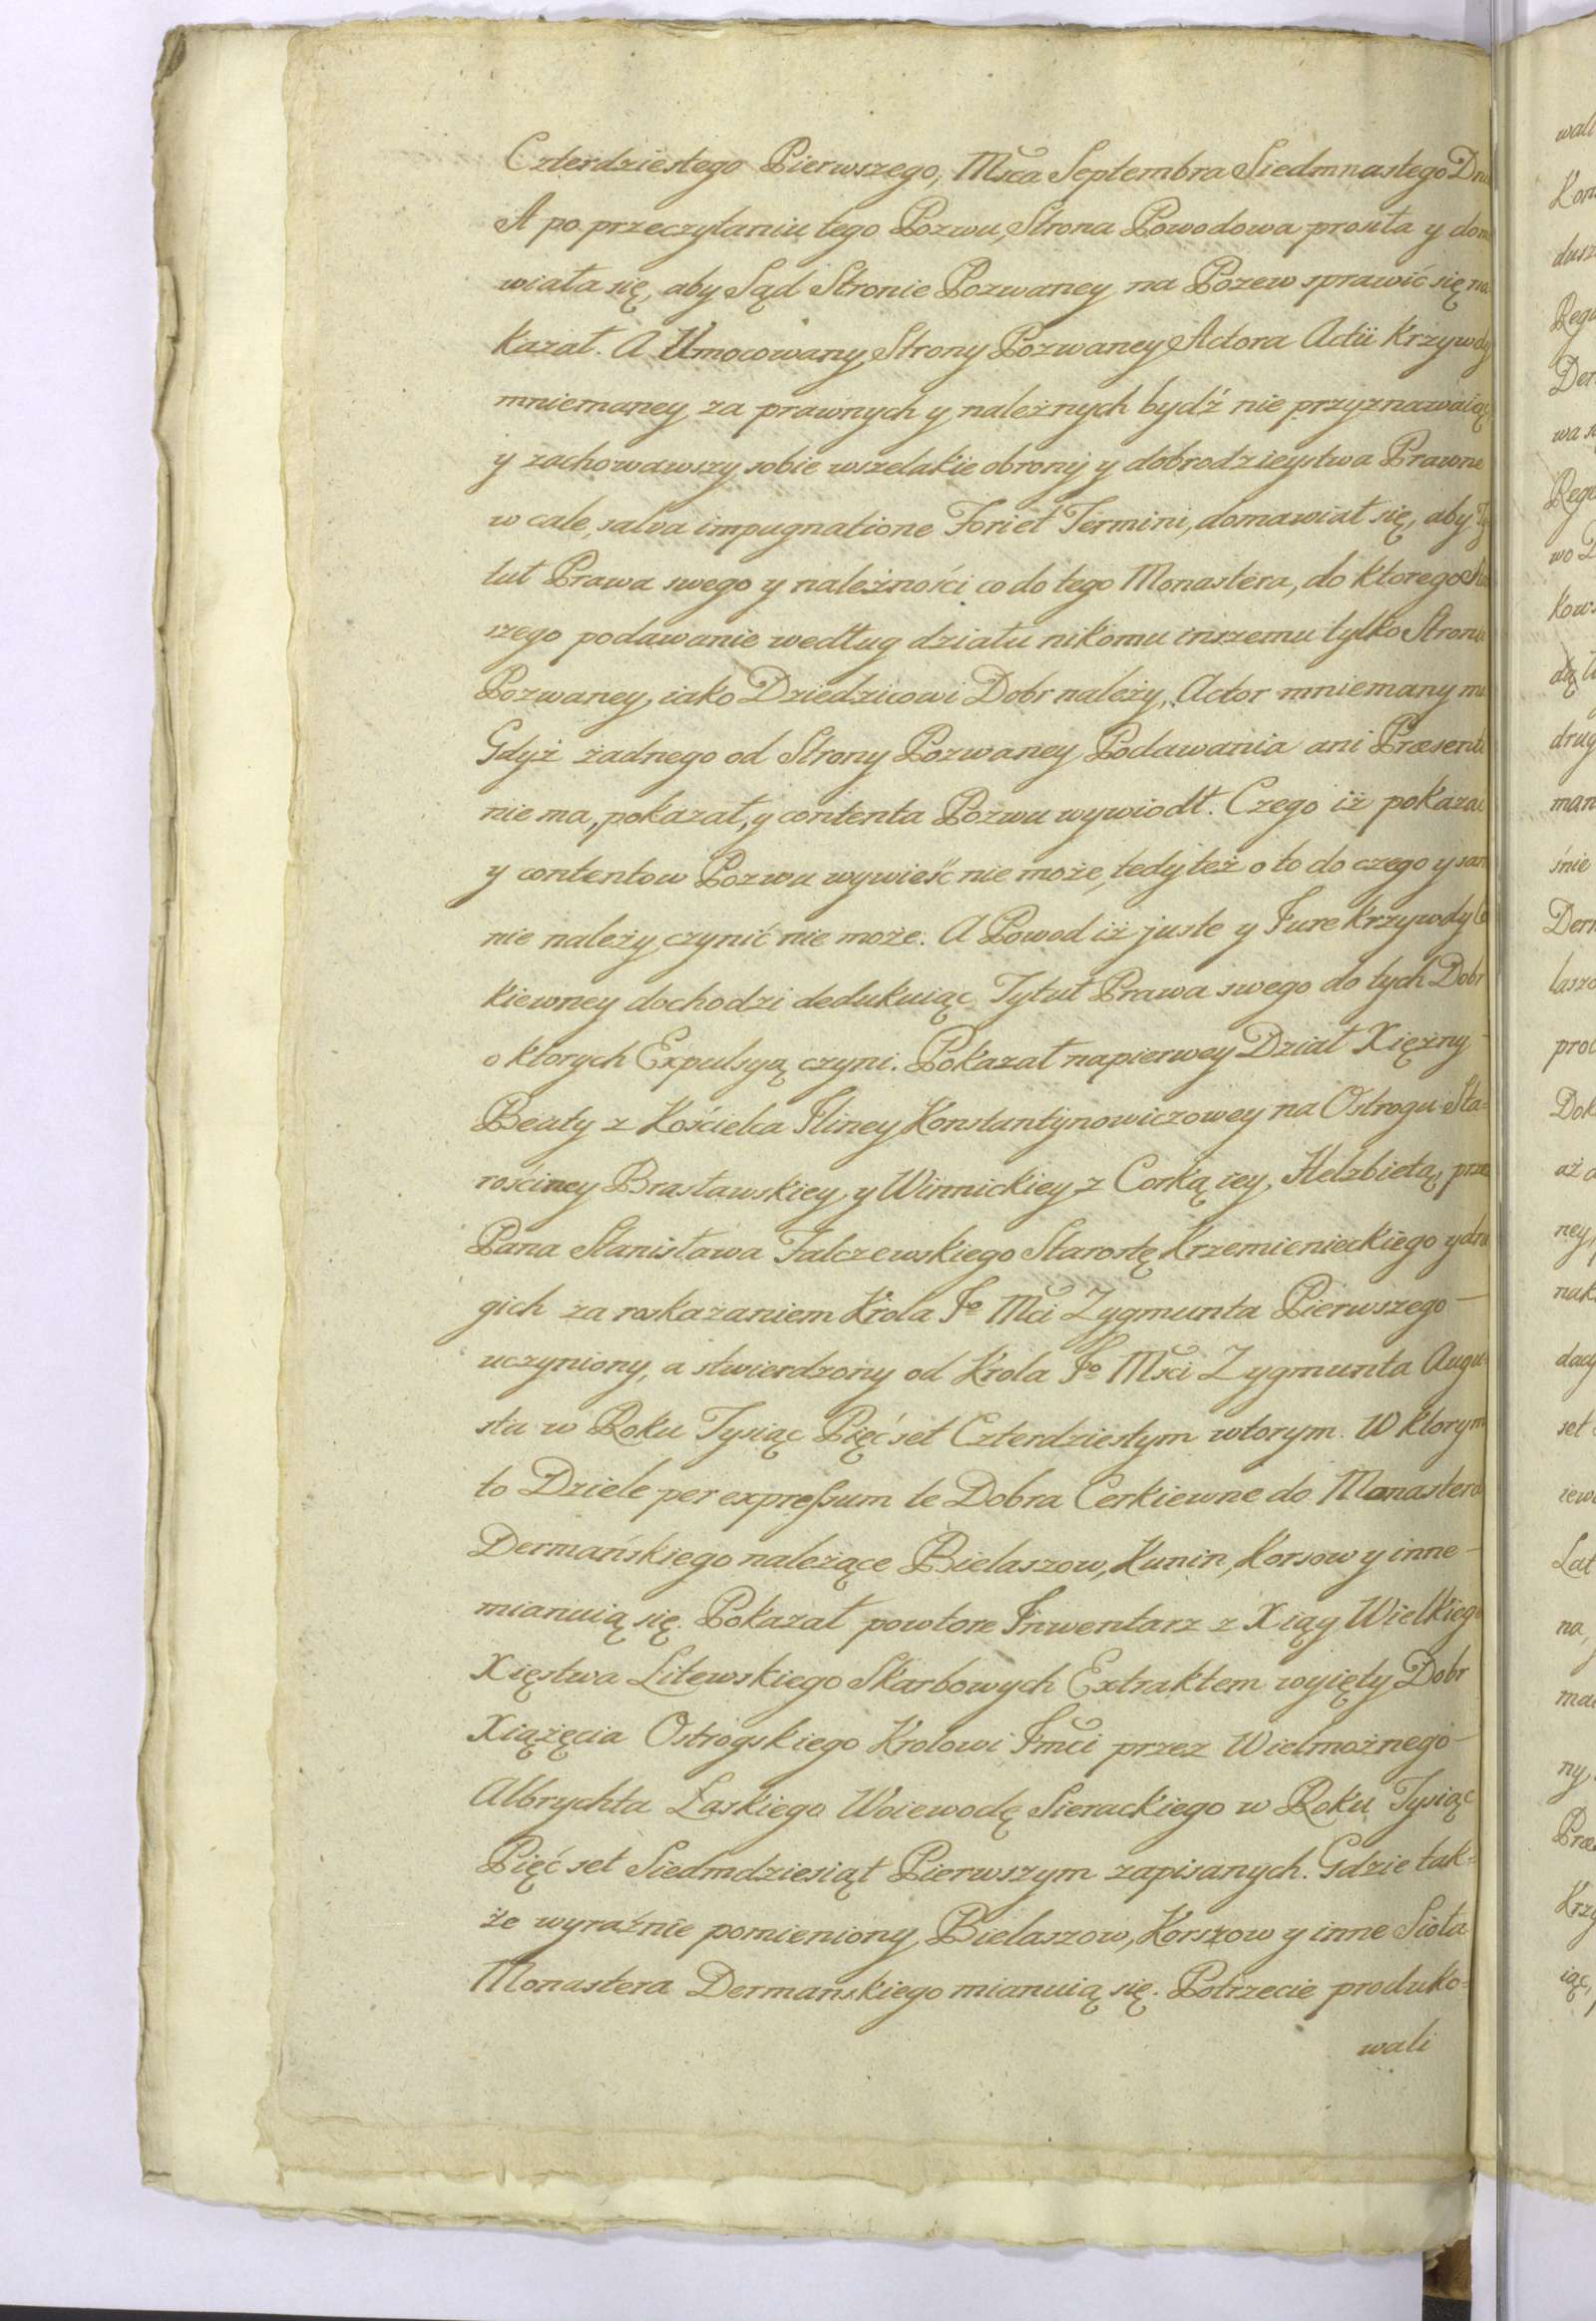 Czterdziestego Pierwszego, Msca Septembra Siedmnastego Dnia
A po przeczytaniu tego Pozwu, Strona Powodowa prosiła y dom
wiała się, aby Sąd Stronie Pozwaney na Pozew sprawić się na
kazał. A Umocowany Strony Pozwaney Actora Actii Krzywdy
mniemaney za prawnych y należnych bydź nie przyznawaiąc
y zachowawszy sobie wszelakie obrony y dobrodzieystwa Prawne
w cale, salva impugnatione Fori et Termini, domawiał się, aby Ty
tuł Prawa swego y należności co do tego Monastera, do ktorego
szego podawanie według działu nikomu inszemu tylko Stronie
Pozwaney, iako Dziedzicowi Dobr należy, Actor mniemany
Gdyż żadnego od Strony Pozwaney Podawania ani Præsent
nie ma, pokazał, y contenta Pozwu wywiodł. Czego iż pokazać
y contentow Pozwu wywieść nie może, tedy też o to do czego y sam
nie należy czynić nie może. A Powod iż juste y Jure Krzywdy Ce
kiewney dochodzi dedukuiąc Tytuł Prawa swego do tych Dobr
o ktorych Expulsyą czyni. Pokazał napierwey Dział Xiężny
Beaty z Kościelca Iliney Konstantynowiczowey na Ostrogu Sta=
rościney Brasławskiey y Winnickiey z Corką iey, Helzbietą, przez
Pana Stanisława Falczewskiego Starostę Krzemienieckiego y dru
gich za roskazaniem Krola Jo Mci Zygmunta Pierwszego —
uczyniony, a stwierdzony od Krola Jo Msci Zygmunta Augu=
sta w Roku Tysiąc Pięć set Czterdziestym wtorym. W ktorym
to Dziele per expressum te Dobra Cerkiewne do Monastera
Dermańskiego należące Bielaszow, Kunin, Korsow y inne —
mianuią się. Pokazał powtore Inwentarz z Xiąg Wielkiego
Xięstwa Litewskiego Skarbowych Extraktem wyięty Dobr
Xiążęcia Ostrogskiego Krolowi Jmci przez Wielmożnego —
Albrychta Łaskiego Woiewodę Sierackiego w Roku Tysiąc
Pięć set Siedmdziesiąt Pierwszym zapisanych. Gdzie tak=
że wyraźnie pomieniony Bielaszow, Korszow y inne Sioła
Monastera Dermańskiego mianuią się. Potrzecie produko=
wali